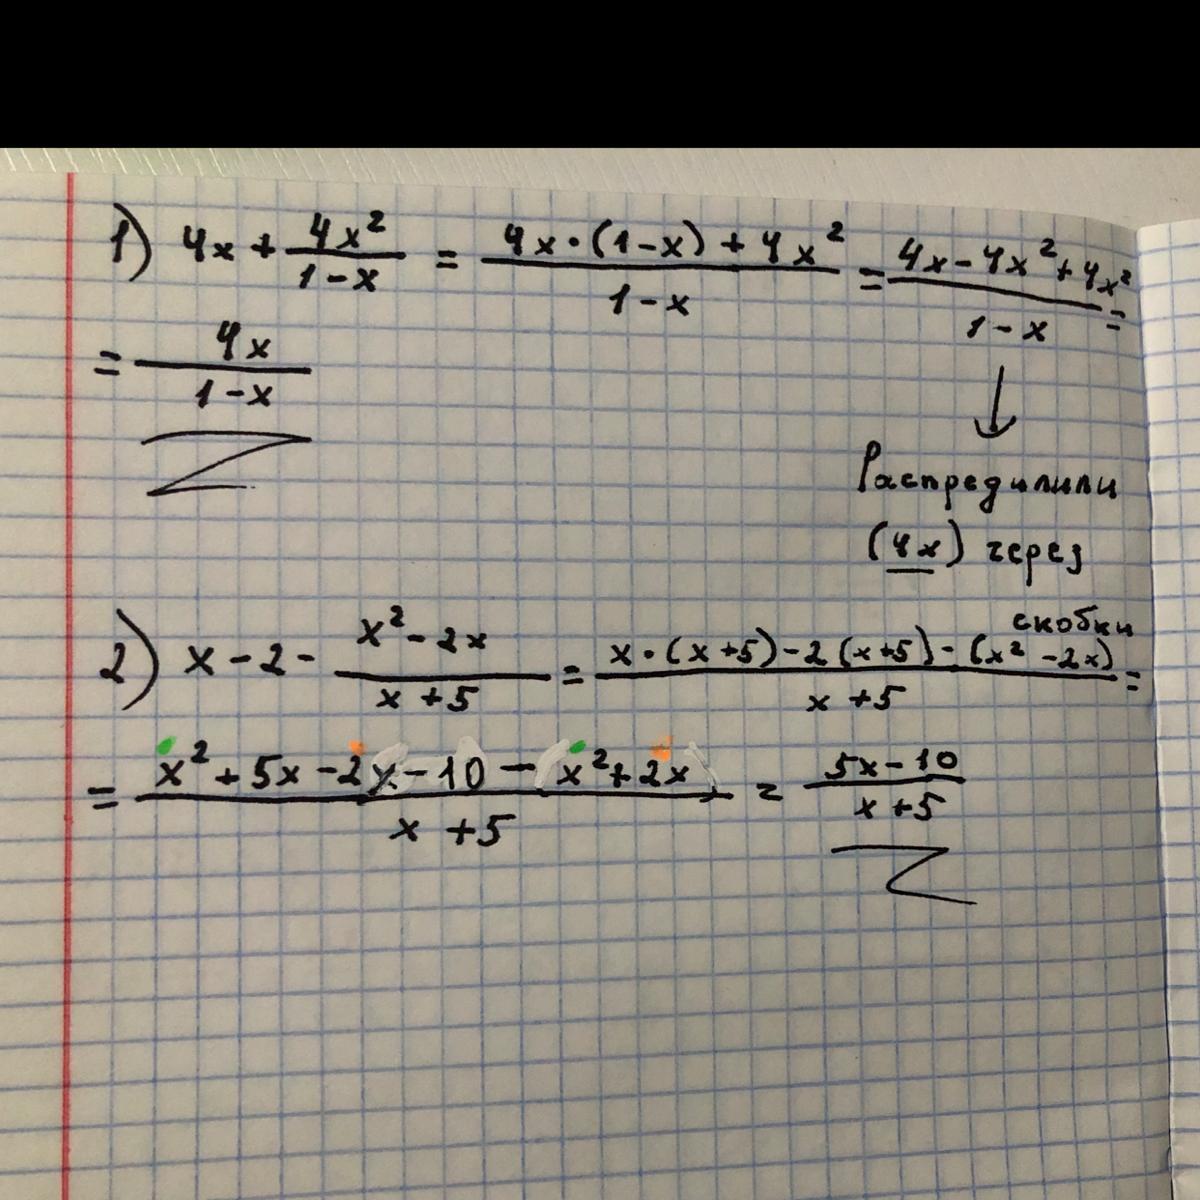 1) 4x + \frac{4x^2}{1-x} = \frac{4x·(1-x)+4x^2}{1-x} = \frac{4x-4x^2+4x^2}{1-x} =
= \frac{4x}{1-x}
Распредилили
(4x) через
скобки
2) x-2-\frac{x^2-2x}{x+5} = \frac{x·(x+5)-2(x+5)-(x^2-2x)}{x+5} =
= \frac{x^2+5x-2x-10-x^2+2x}{x+5} = \frac{5x-10}{x+5}